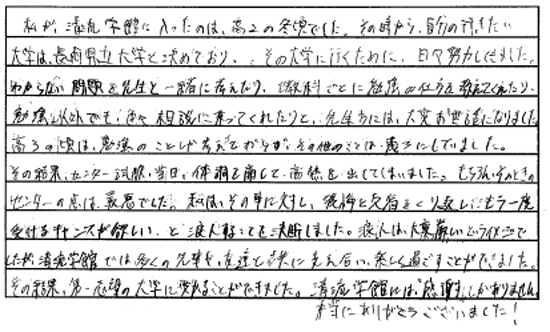 私が、清風学館に入ったのは、高2の冬頃でした。その時から、自分の行きたい
大学は、長崎県立大学と決めており、その大学に行くために、日々努力してきました。
わからない問題を先生と一緒に考えたり、教科ごとに勉強の仕方を教えてくれたり、
勉強以外でも色々相談に乗ってくれたりと、先生方には、大変お世話になりました。
高3の頃は、勉強のことしか考えておらず、その他のことは、疎かにしていました。
その結果、センター試験、当日、体調を崩して、高熱を出してしまいました。もちろん、そのときの
センターの点は、最悪でした。私は、その事に対し、後悔と反省をくり返し、もう一度
受けるチャンスが欲しい、と浪人することを決断しました。浪人は、大変厳しいというイメージで
したが、清風学館では多くの先生や、友達と共に支え合い、楽しく過ごすことができました。
その結果、第一志望の大学に受かることができました。清風学館には、"感謝"しかありません。
本当にありがとうございました!